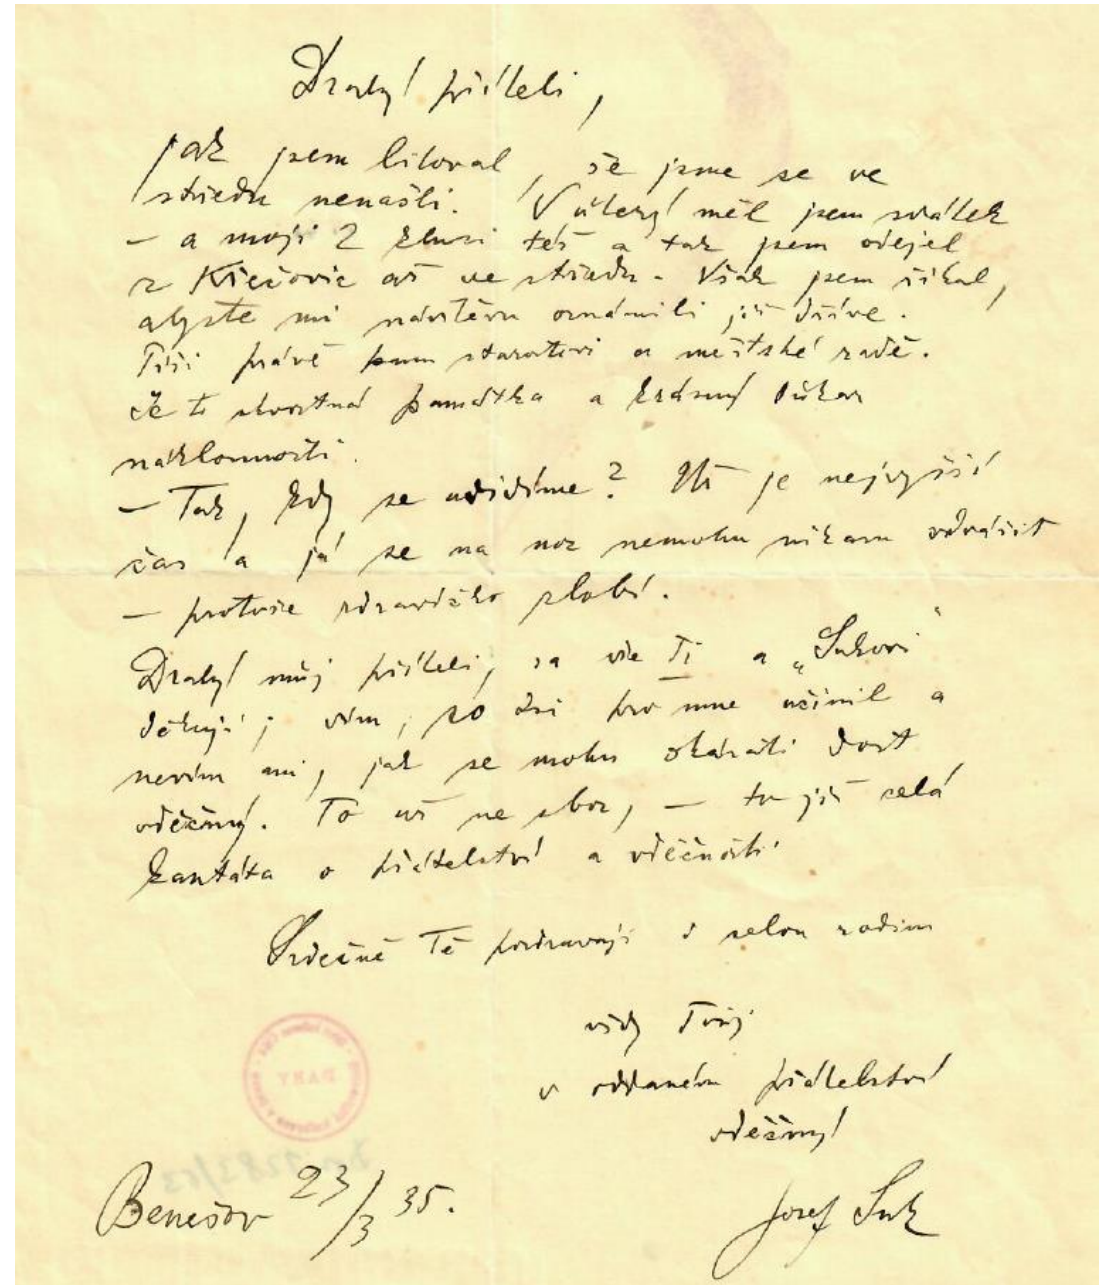 Drahý příteli,
jak jsem litoval, že jsme se ve
středu nenašli. V úterý měl jsem svátek
– a moji 2 kluci též a tak jsem odejel
z Křečovic až ve středu. Však jsem říkal,
abyste mi návštěvu oznámili již dříve.
Píši právě panu starostovi a městské radě.
Je to skvostná památka a krásný důkaz
náklonnosti.
– Tak, kdy se uvidíme? Už je nejvyšší
čas a já se na noc nemohu nikam odvážit
– protože zdravíčko zlobí.
Drahý můj příteli, za vše Ti a „Sukovi"
děkuji; vím, co jsi pro mne učinil a
nevím ani, jak se mohu ukázati dost
vděčný. To už ne sbor, – to již celá
kantáta o přátelství a vděčnosti
Srdečně Tě pozdravuji s celou rodinou
vždy Tvůj
v oddaném přátelství
vděčný
Benešov 23/3 35.
Josef Suk
DARY